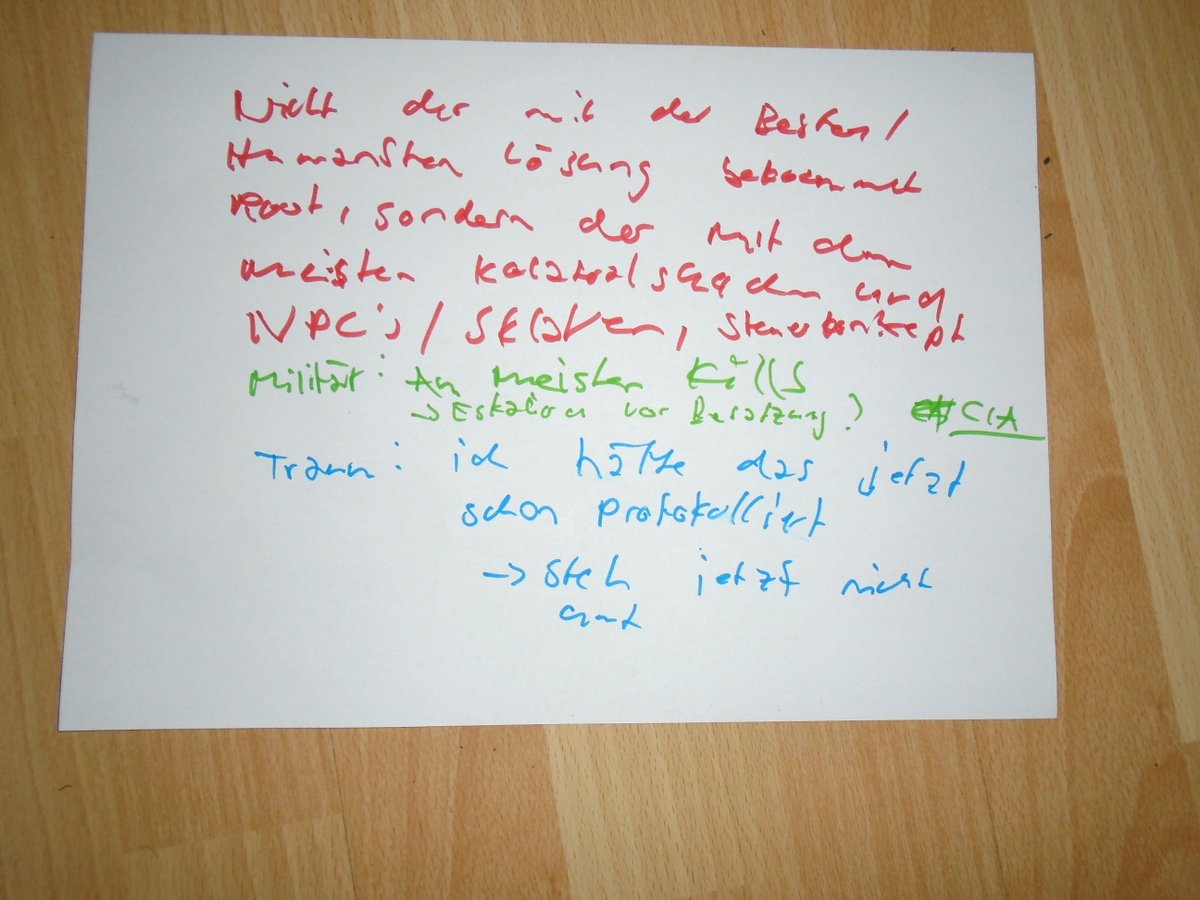 Nicht der mit der Besten/
Humansten Lösung bekommt
Root, sondern der mit dem
meisten Kolateralschaden und
NPC's/Sklaven, Steuerkonzept
Militär: Am meisten Kills
→ Eskalation vor Besatzung? CIA
Traum: ich hätte das jetzt
schon protokolliert
→ Steh jetzt nicht
auf